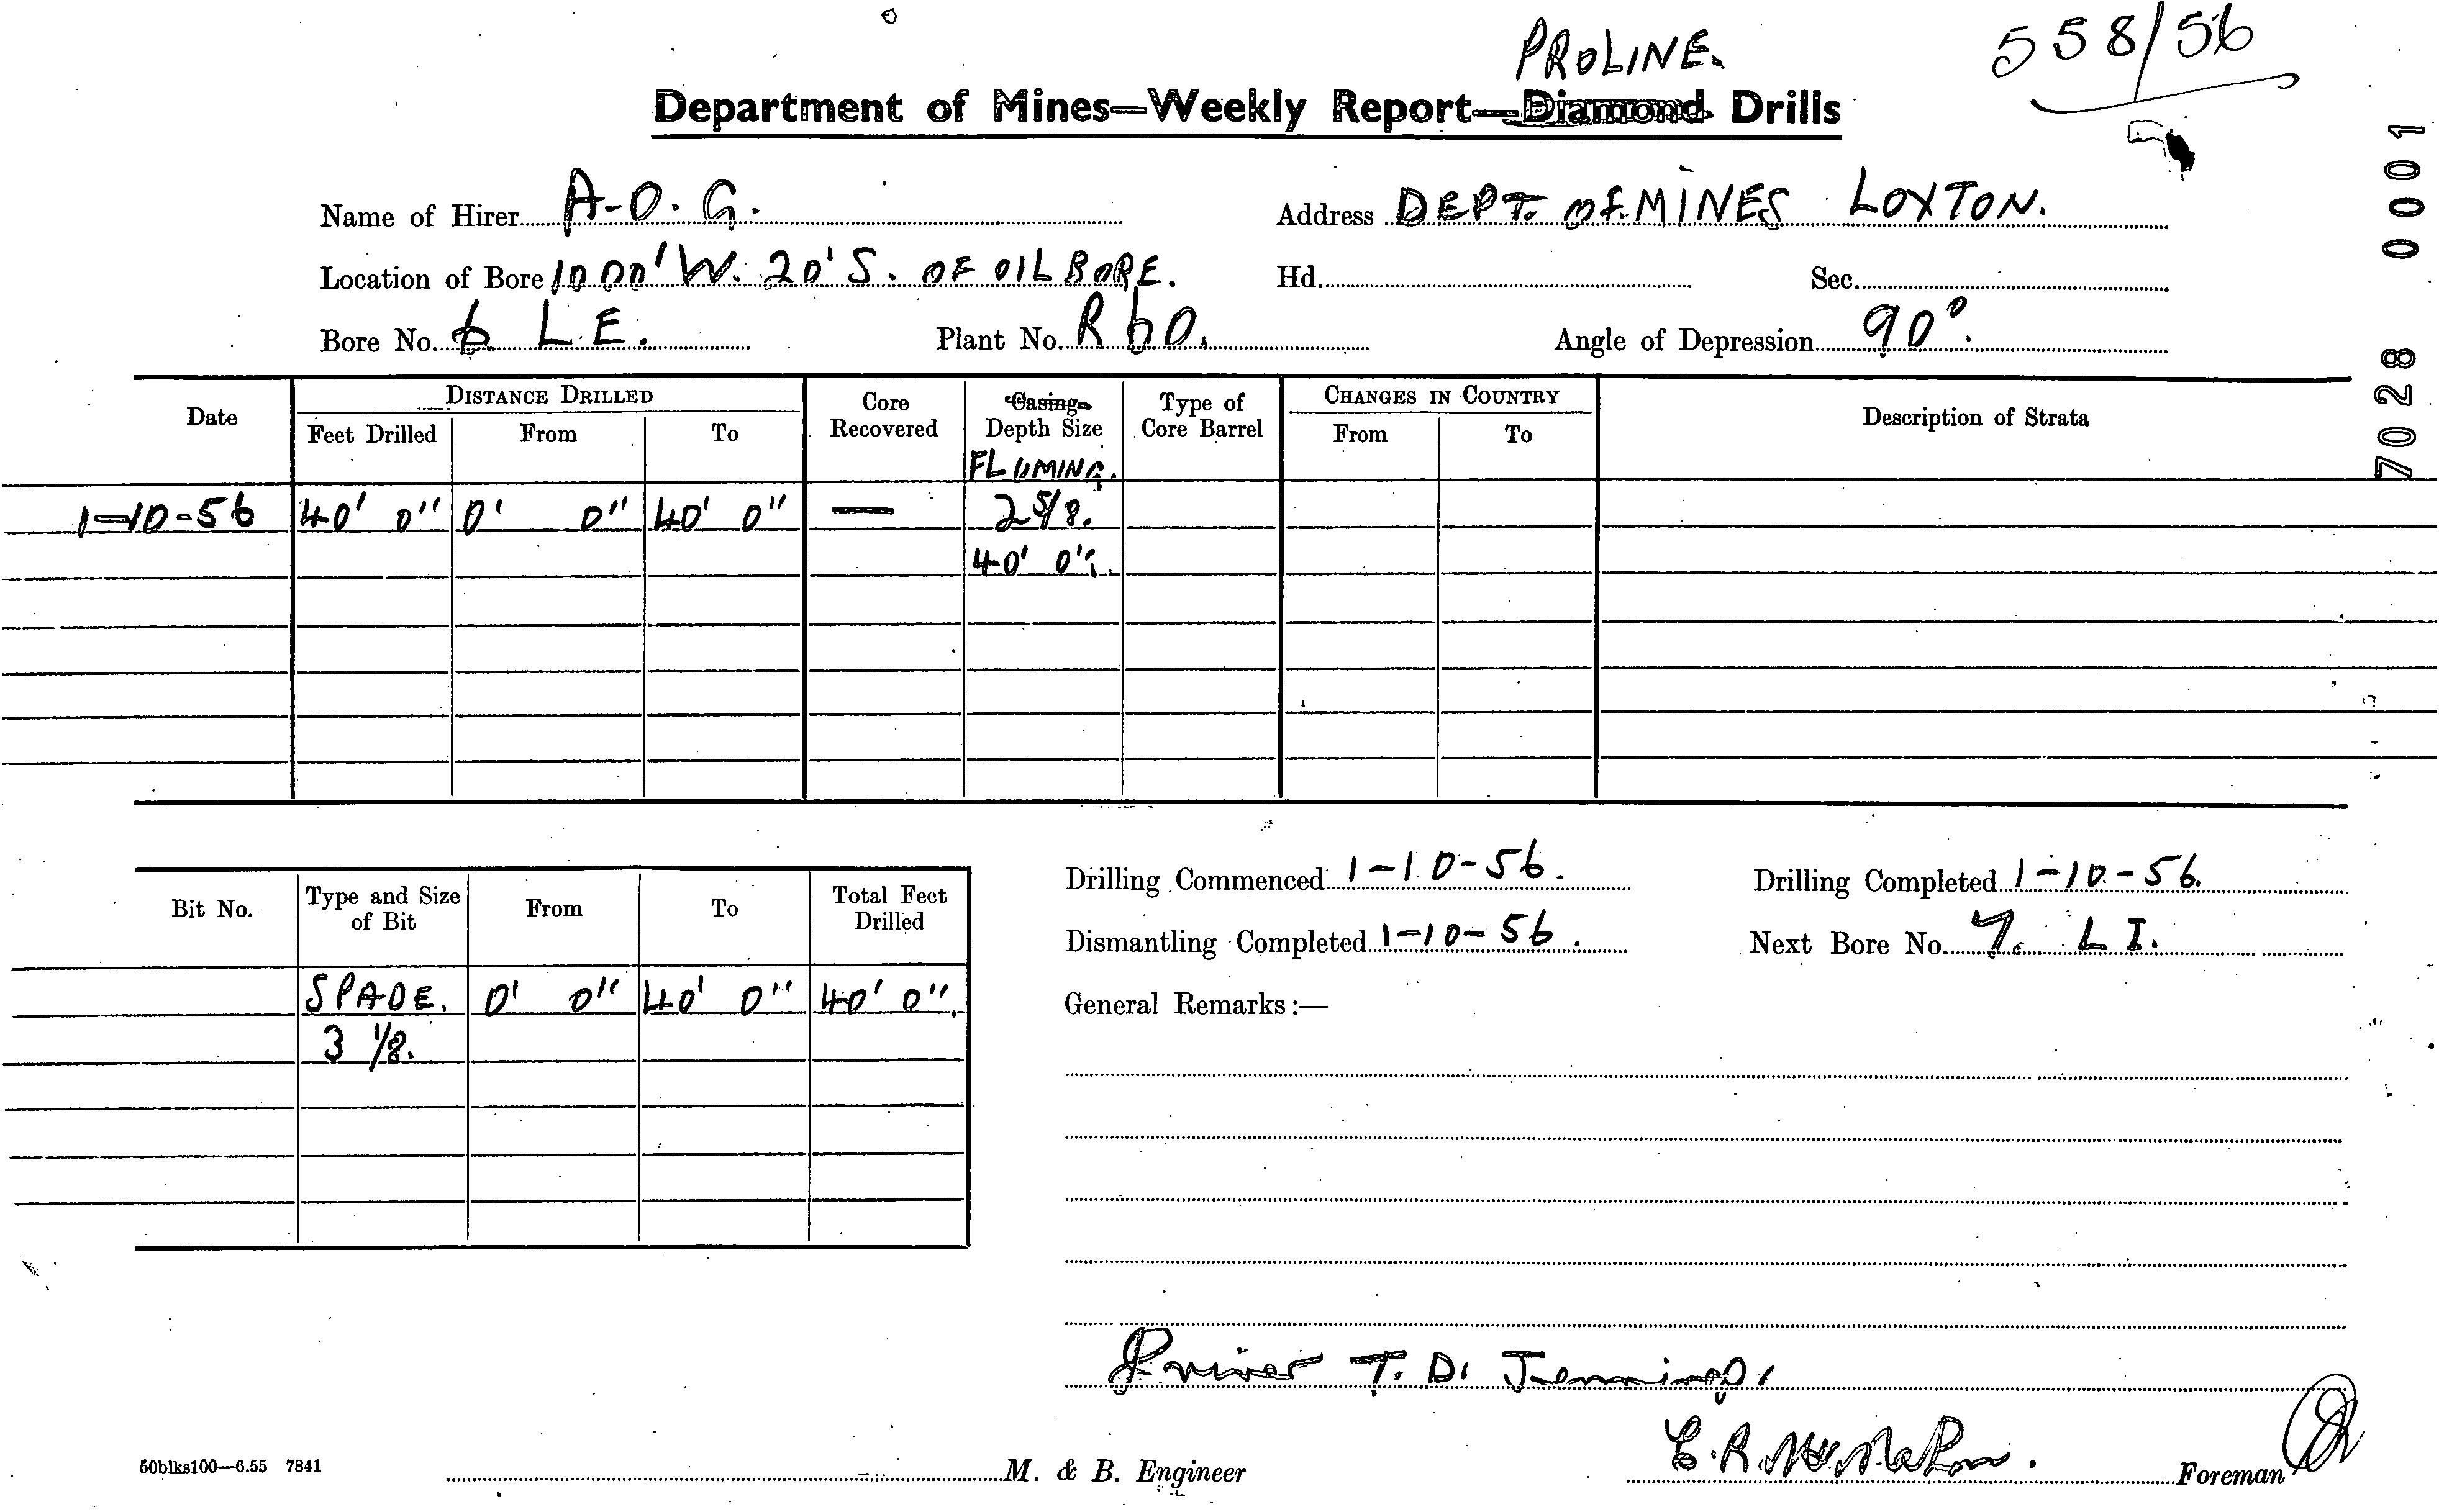 PROLINE. 558/56
Department of Mines—Weekly Report—Diamond Drills
Name of Hirer A-O.G. Address DEPT. OF MINES LOXTON.
Location of Bore 1000' W. 20' S. OF OIL BORE. Hd. Sec.
Bore No. 6 L.E. Plant No. R60. Angle of Depression 90°.
Date DISTANCE DRILLED Core Recovered Casing Depth Size Type of Core Barrel CHANGES IN COUNTRY Description of Strata
Feet Drilled From To From To
FLUMING.
1-10-56 40' 0" 0' 0" 40' 0" — 2 5/8.
40' 0".
Drilling Commenced 1-10-56. Drilling Completed 1-10-56.
Bit No. Type and Size of Bit From To Total Feet Drilled
Dismantling Completed 1-10-56. Next Bore No. 7. L I.
SPADE. 0' 0" 40' 0" 40' 0".
General Remarks:—
3 1/8.
Driver T. D. Jennings.
50blks100—6.55 7841 M. & B. Engineer C. R. Foreman
7028 0001